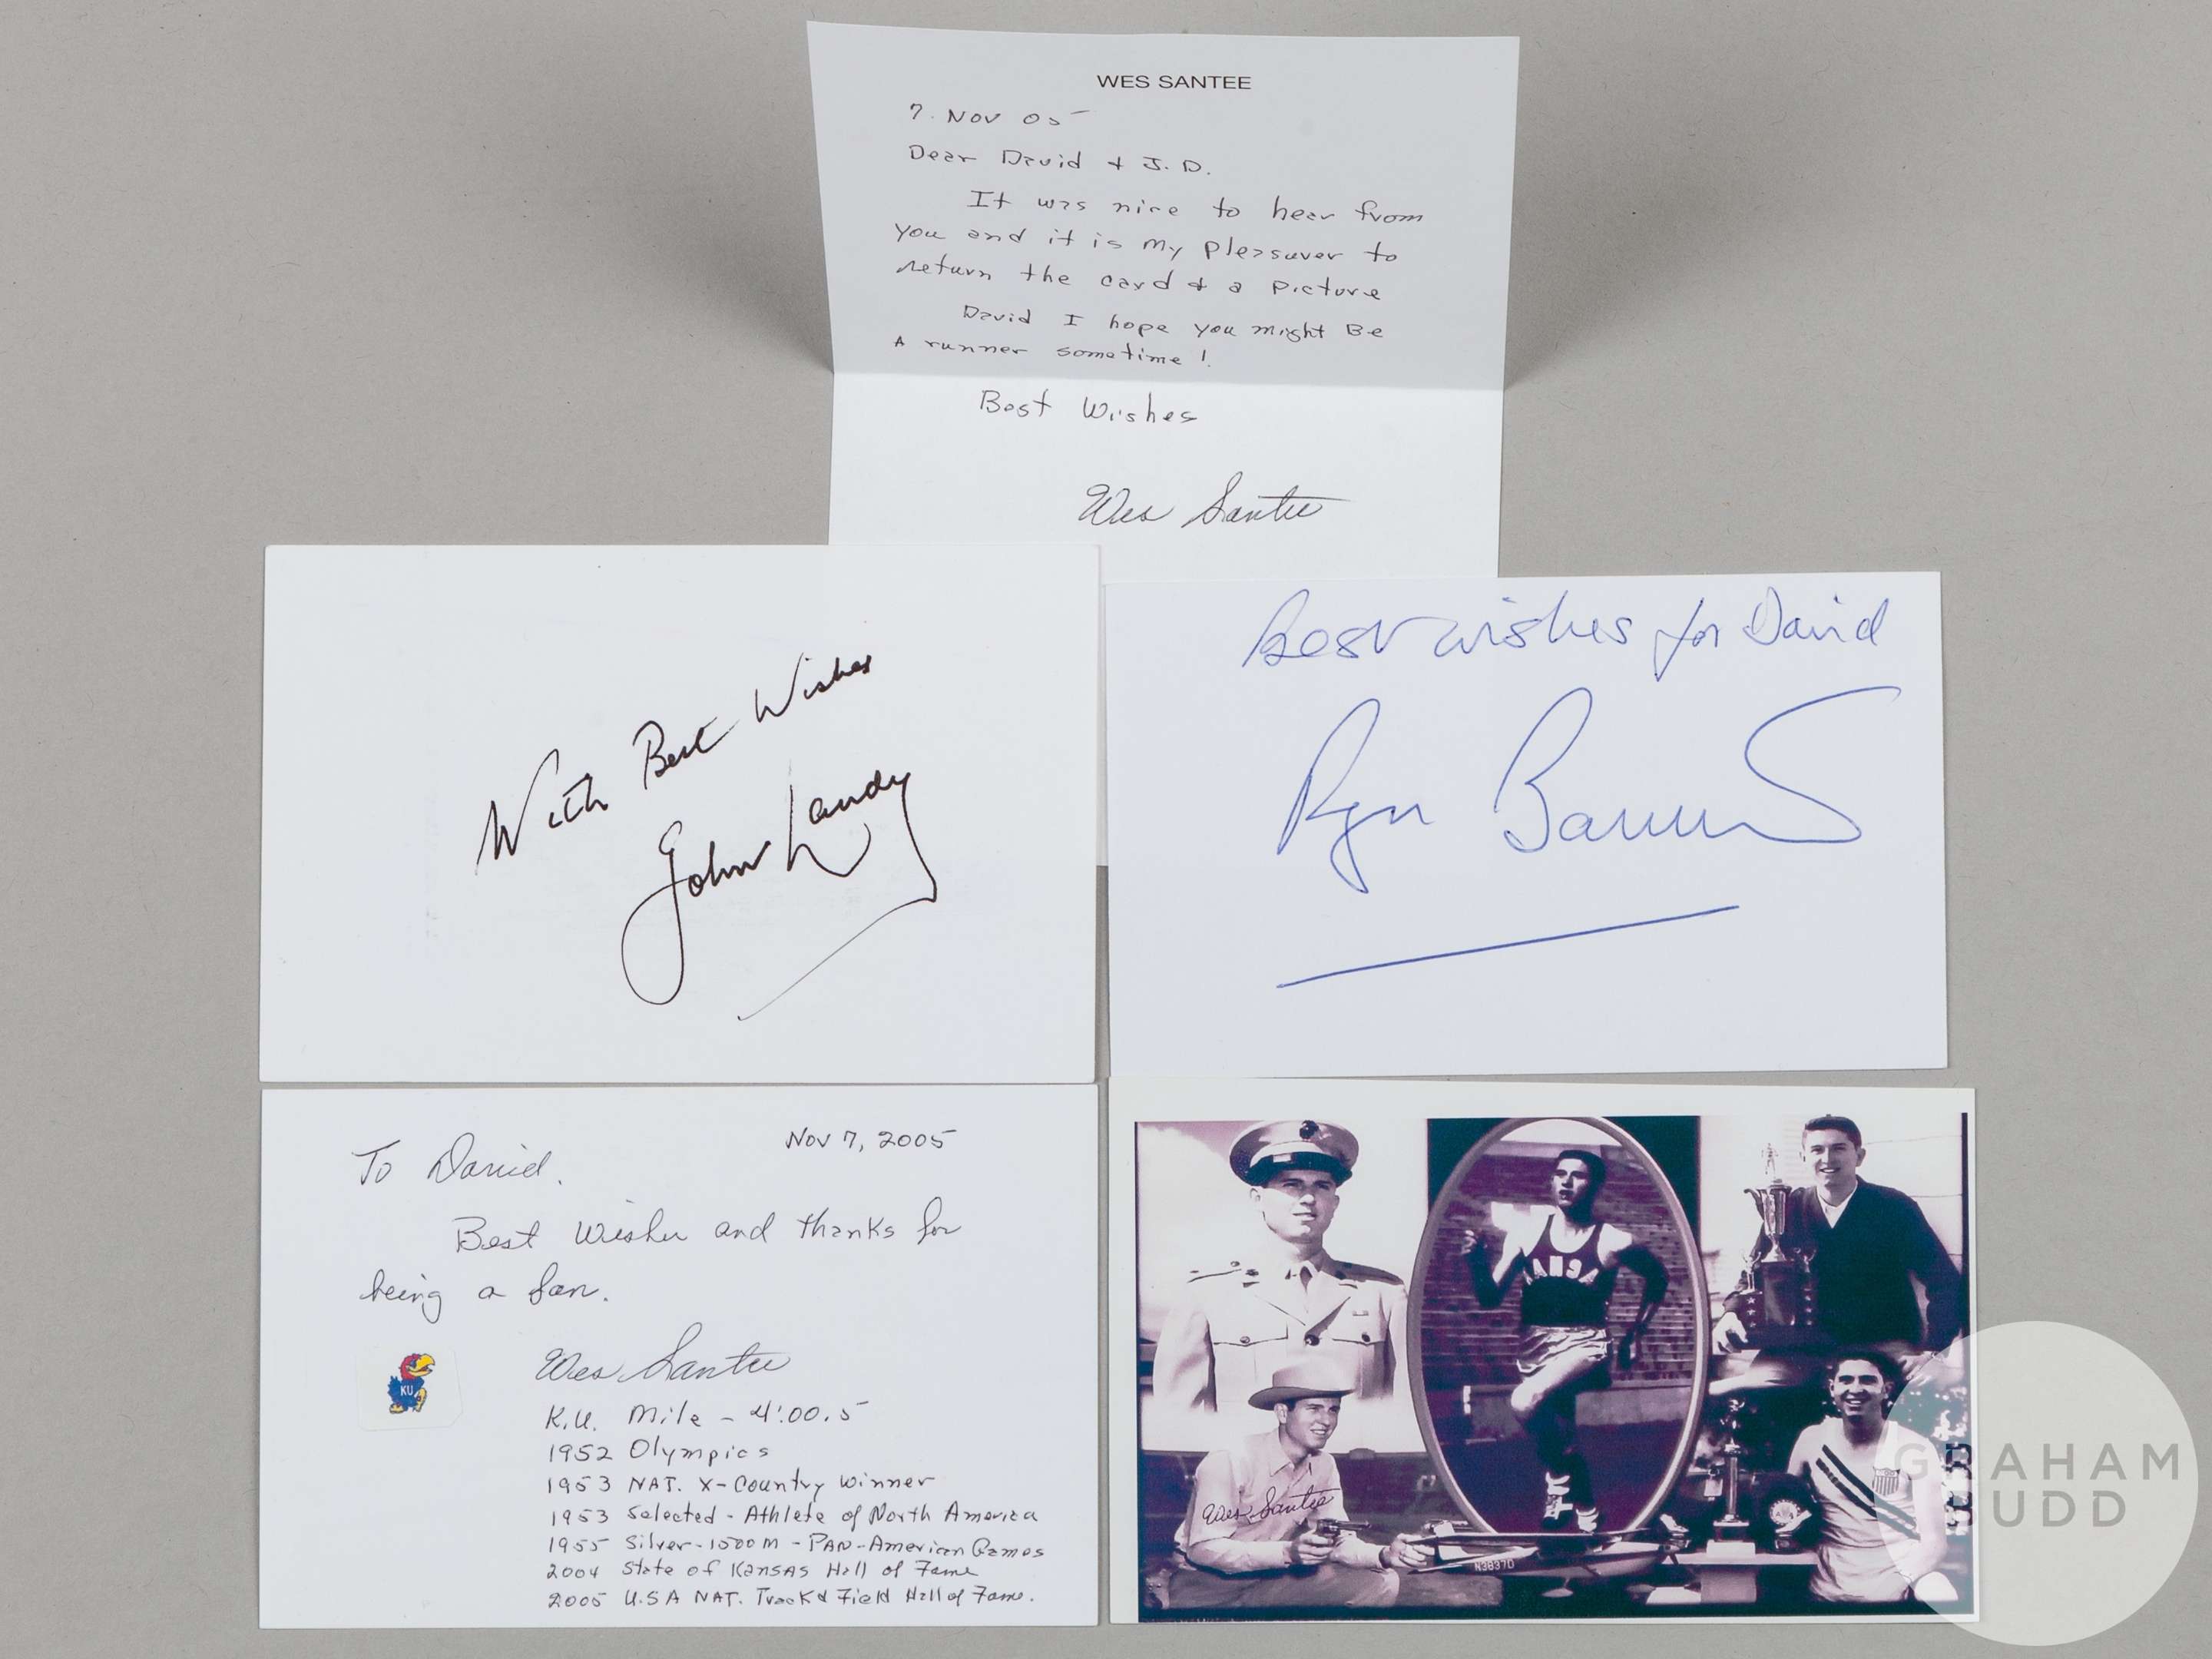 WES SANTEE
7. Nov 05
Dear David + J.D.
It was nice to hear from
you and it is my pleasuver to
return the card & a picture
David I hope you might Be
A runner sometime!
Best Wishes
Wes Santee
With Best Wishes
John Landy
Best wishes for David
Roger Bannister
Nov 7, 2005
To David.
Best Wishes and thanks for
being a fan.
Wes Santee
KU
K.U. Mile - 4:00.5
1952 Olympics
1953 NAT. X-Country Winner
1953 Selected - Athlete of North America
1955 Silver-1500 M - PAN-American Games
2004 State of KANSAS Hall of Fame
2005 U.S.A NAT. Track & Field Hall of Fame.
KANSA
Wes Santee
N3837D
GRAHAM
BUDD